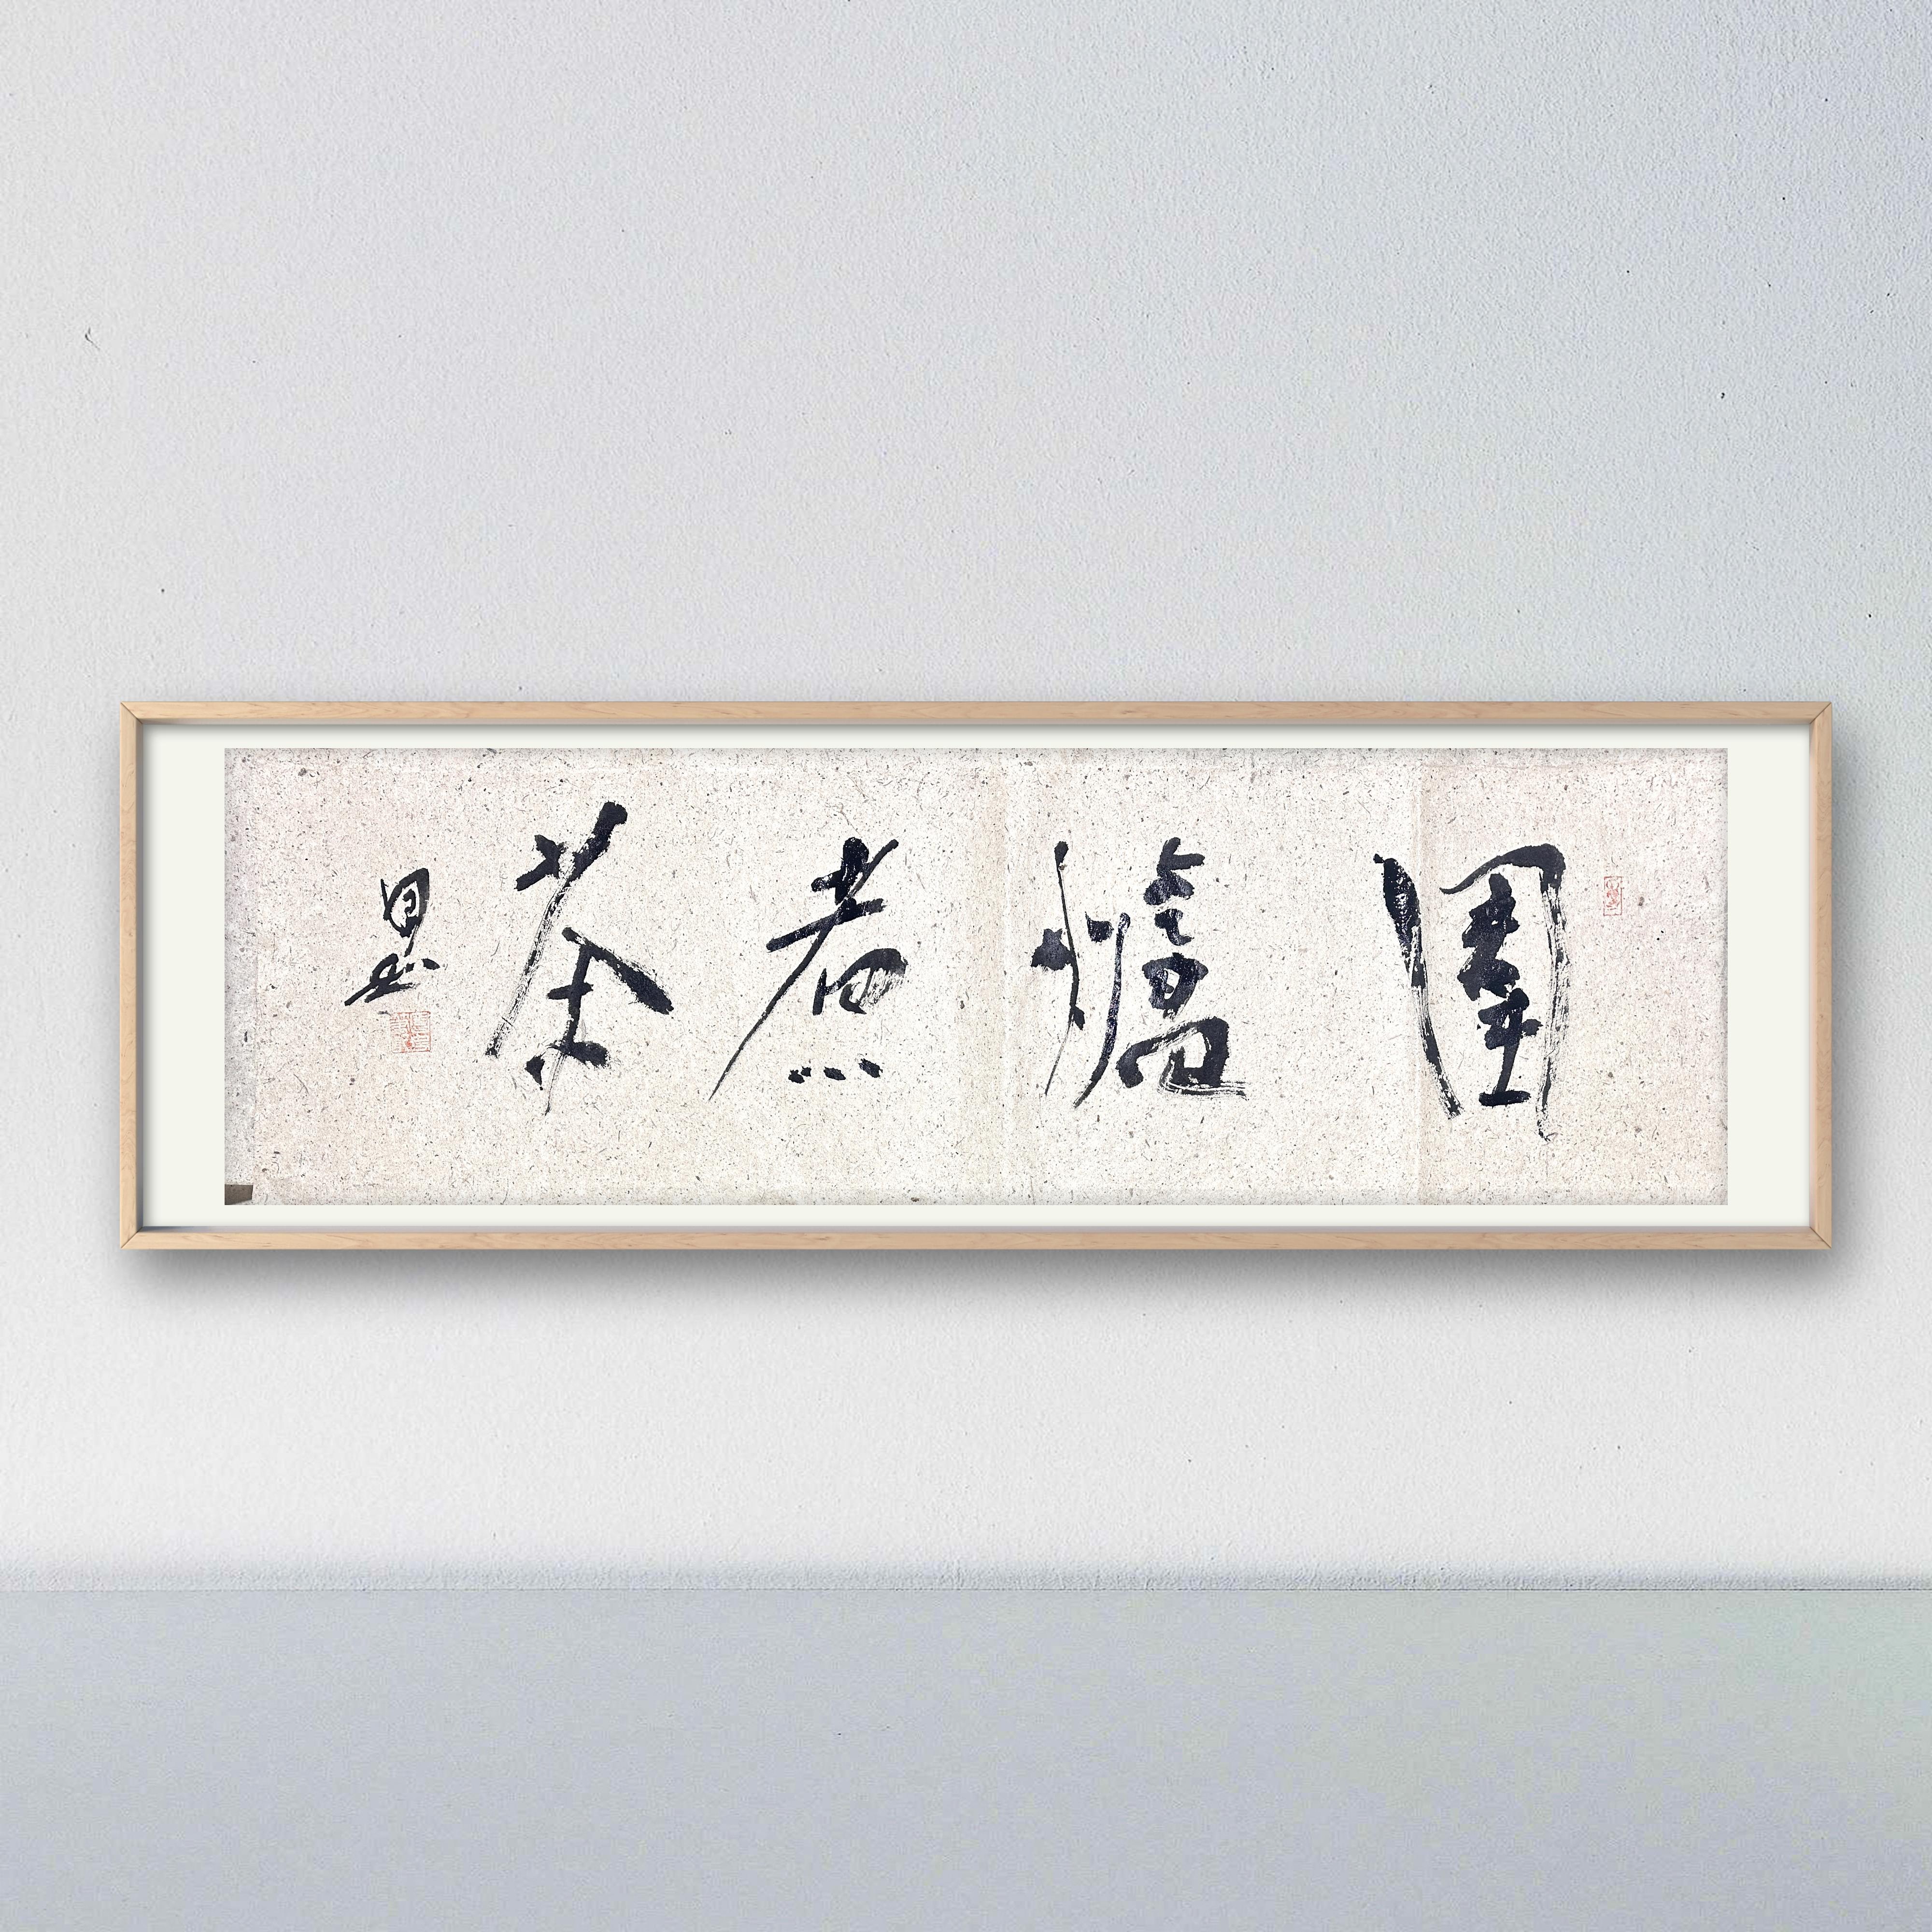 圍爐煮茶